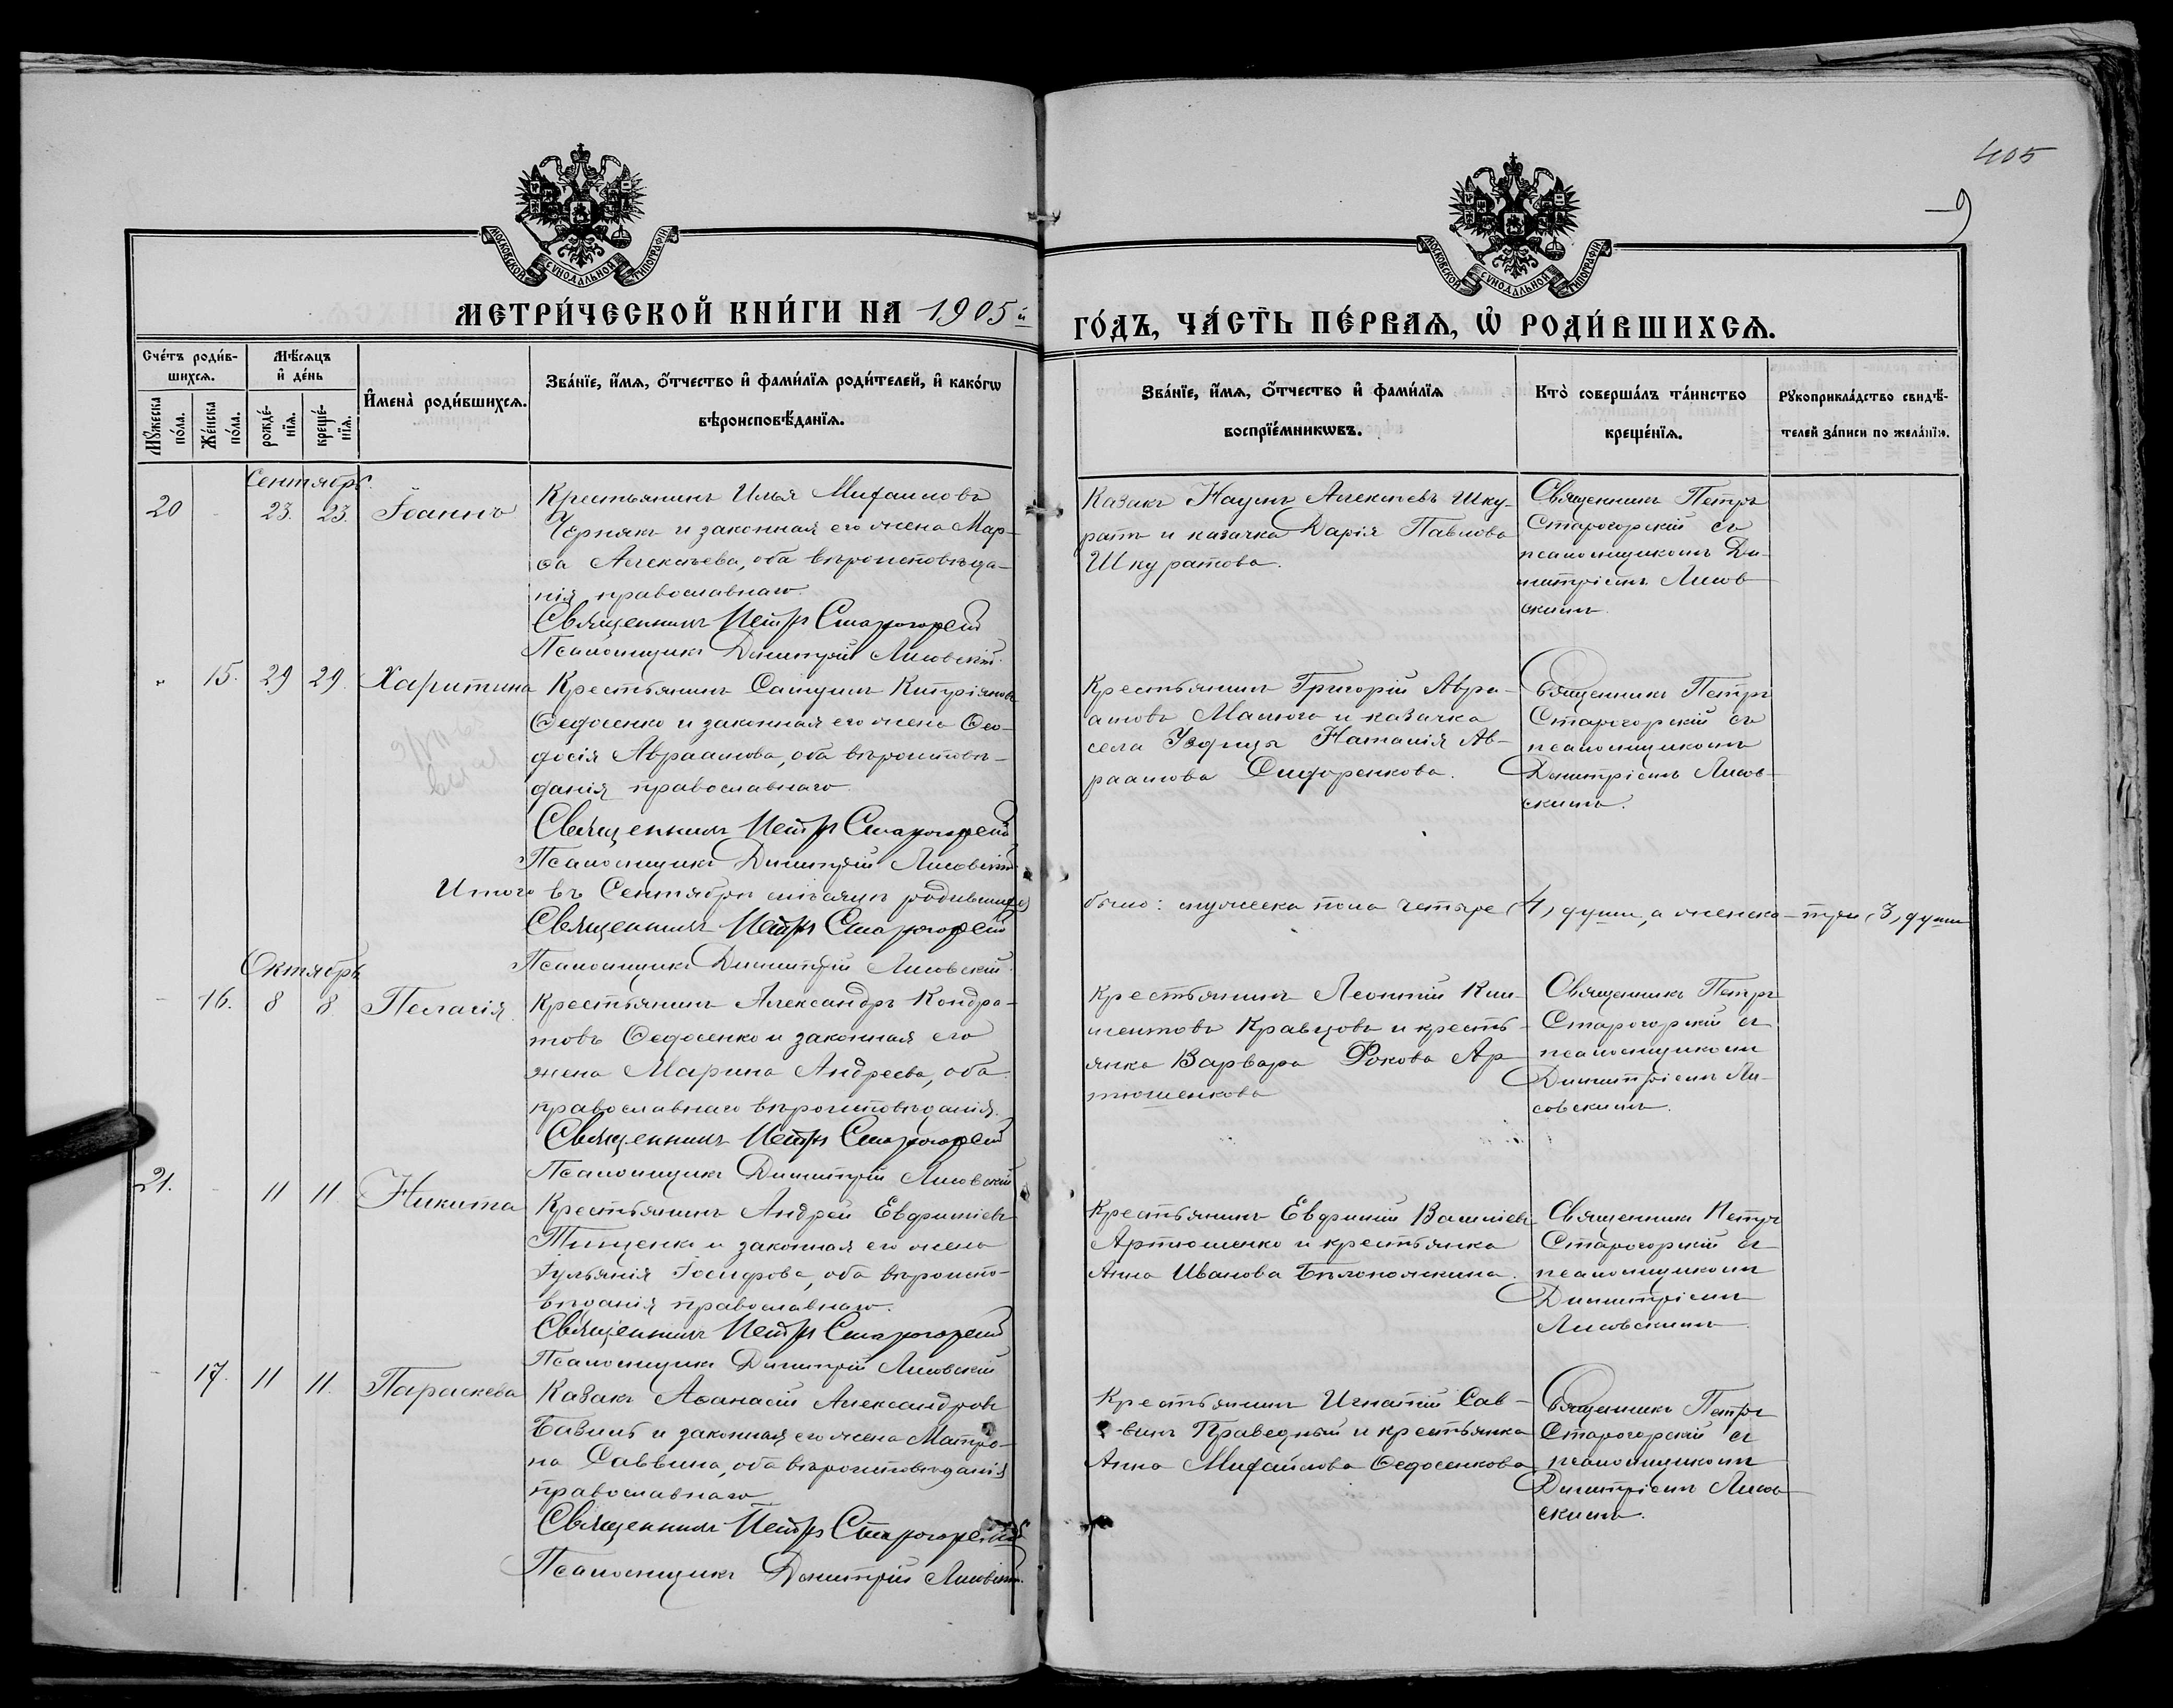 405
9
МОСКОВСКОЙ СѴНОДАЛЬНОЙ ТИПОГРАФІИ
МОСКОВСКОЙ СѴНОДАЛЬНОЙ ТИПОГРАФІИ
МЕТРИ́ЧЕСКОЙ КНИ́ГИ НА 1905й
ГО́ДЪ, ЧА́СТЬ ПЕ́РВАЯ, Ѡ҆ РОДИ́ВШИХСѦ.
Сче́тъ роди́в-
шихсѧ.
Мѣ́сѧцъ
и҆ де́нь
Мꙋ́жеска
по́ла.
Же́нска
по́ла.
рожде́-
нїѧ.
креще́-
нїѧ.
И҆мена̀ роди́вшихсѧ.
Зва́нїе, и҆́мѧ, о҆́тчество и҆ фами́лїѧ роди́телей, и҆ како́гѡ
вѣроисповѣ́данїѧ.
Зва́нїе, и҆́мѧ, о҆́тчество и҆ фами́лїѧ
воспрїе́мникѡвъ.
Кто̀ соверша́лъ та́инство
креще́нїѧ.
Рꙋкоприкла́дство свидѣ́-
телей за́писи по жела́нїю.
Сентябрь.
20 - 23. 23. Іоаннъ
Крестьянинъ Илья Михаиловъ
Чернякъ и законная его жена Мар-
ѳа Алексѣева, оба вѣроисповѣда-
нія православнаго.
Священникъ Петръ Старогорскій
Псаломщикъ Димитрій Лисовскій.
Казакъ Наумъ Алексѣевъ Шку-
ратъ и казачка Дарія Павлова
Шкуратова.
Священникъ Петръ
Старогорскій съ
псаломщикомъ Ди-
митріемъ Лисов-
скимъ.
" 15. 29 29. Харитина
Крестьянинъ Самуилъ Кипріяновъ
Ѳедосенко и законная его жена Ѳео-
досія Авраамова, оба вѣроисповѣ-
данія православнаго.
Священникъ Петръ Старогорскій
Псаломщикъ Димитрій Лисовскій
Крестьянинъ Григорій Авра-
амовъ Малюга и казачка
села Уздицы Наталія Ав-
раамова Сидоренкова.
Священникъ Петръ
Старогорскій съ
псаломщикомъ
Димитріемъ Лисов-
скимъ.
Итого въ Сентябрѣ мѣсяцѣ родившихся
было: мужеска пола четыре (4) души, а женска - три (3) души
Священникъ Петръ Старогорскій
Псаломщикъ Димитрій Лисовскій
Октябрь
- 16. 8 8. Пелагія
Крестьянинъ Александръ Кондра-
товъ Ѳедосенко и законная его
жена Марина Андреева, оба
православнаго вѣроисповѣданія.
Священникъ Петръ Старогорскій
Псаломщикъ Димитрій Лисовскій
Крестьянинъ Леонтій Кли-
ментовъ Кравцовъ и кресть-
янка Варвара Фокова Ар-
тюшенкова
Священникъ Петръ
Старогорскій съ
псаломщикомъ
Димитріемъ Ли-
совскимъ.
21. - 11 11 Никита
Крестьянинъ Андрей Евфиміевъ
Тищенко и законная его жена
Іульянія Іосифова, оба вѣроиспо-
вѣданія православнаго.
Священникъ Петръ Старогорскій
Псаломщикъ Димитрій Лисовскій
Крестьянинъ Евфимій Василіевъ
Артюшенко и крестьянка
Анна Иванова Бѣлоножкина.
Священникъ Петръ
Старогорскій съ
псаломщикомъ
Димитріемъ
Лисовскимъ
- 17. 11 11. Параскева
Казакъ Аѳанасій Александровъ
Базиль и законная его жена Матро-
на Саввина, оба вѣроисповѣданія
православнаго
Священникъ Петръ Старогорскій
Псаломщикъ Димитрій Лисовскій.
Крестьянинъ Игнатій Сав-
винъ Праведный и крестьянка
Анна Михайлова Ѳедосенкова
Священникъ Петръ
Старогорскій съ
псаломщикомъ
Димитріемъ Лисов-
скимъ.